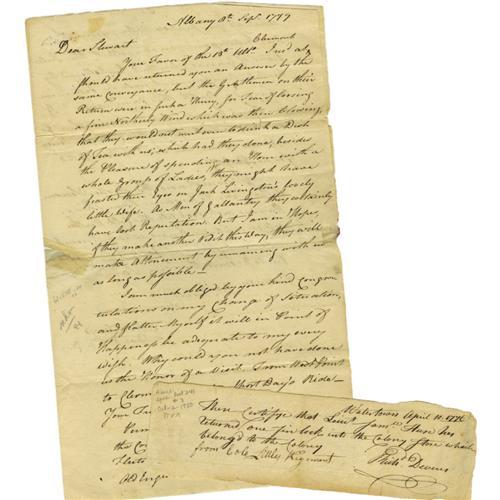 Albany 8th Sept. 1779
Dear Stewart
Clermont
Your Favor of the 13th Ulto. I
should have returned you an Answer by the
same Conveyance, but the Gentlemen on their
Return were in such a Hurry, for Fear of loosing
a fine Northerly Wind which was then blowing,
that they would not with us drink a Dish
of Tea with us; which had they done, besides
the Pleasure of spending an Hour with a
whole Group of Ladies, they might have
feasted their Eyes on Jack Livingston's lovely
little Wife. As Men of Gallantry they certainly
have lost Reputation. But I am in Hopes,
if they make another Visit this Way, they will
make Attonement by remaining with us
as long as possible —
I am much obliged by your kind Congra
tulations on my Change of Situation,
and flatter Myself it will in Point of
Happiness be adequate to my every
wish. Why could you not have done
us the Honor of a Visit. From West Point
to Clermont short Day's Ride —
Your
the
Watertown April 10. 1776
These Certifye that Lieut Jams. has
returned one fire lock into the Colony Store which
belong'd to the Colony
from Colo. Littles Regiment
Phil. Devens